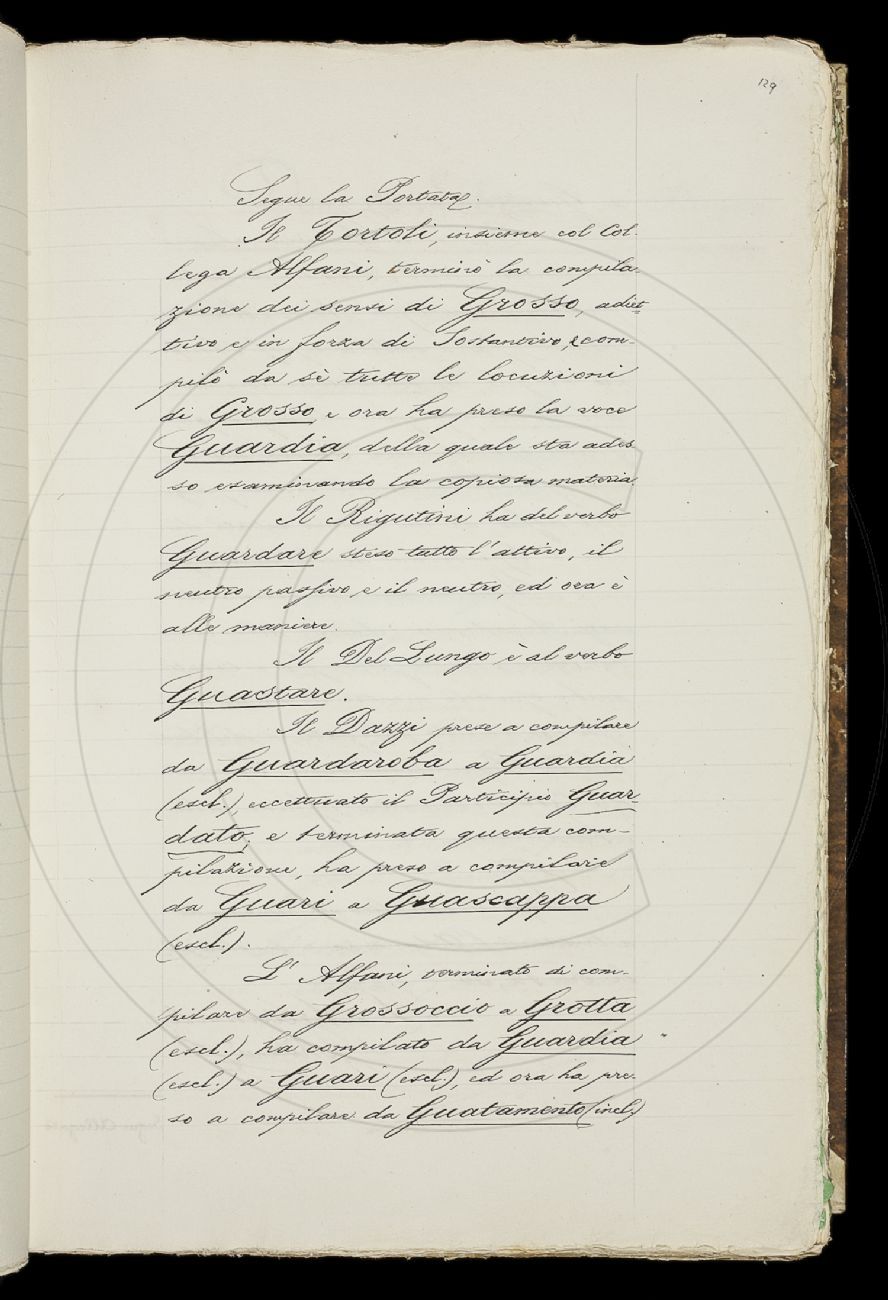 129
Segue la Portata.
Il Tortoli, insieme col Col-
lega Alfani, terminò la compila-
zione dei sensi di Grosso, adiet-
tivo e in forza di Sostantivo, e com-
pilò da sè tutte le locuzioni
di Grosso e ora ha preso la voce
Guardia, della quale sta ades
so esaminando la copiosa materia.
Il Rigutini ha del verbo
Guardare steso tutto l'attivo, il
neutro passivo e il neutro, ed ora è
alle maniere.
Il Del Lungo è al verbo
Guastare.
Il Dazzi prese a compilare
da Guardaroba a Guardia
(escl.), eccettuato il Participio Guar-
dato, e terminata questa com-
pilazione, ha preso a compilare
da Guari a Guascappa
(escl.).
L'Alfani, terminato di com-
pilare da Grossoccio a Grotta
(escl.), ha compilato da Guardia
(escl.) a Guari (escl.), ed ora ha pre-
so a compilare da Guatamento (incl.)